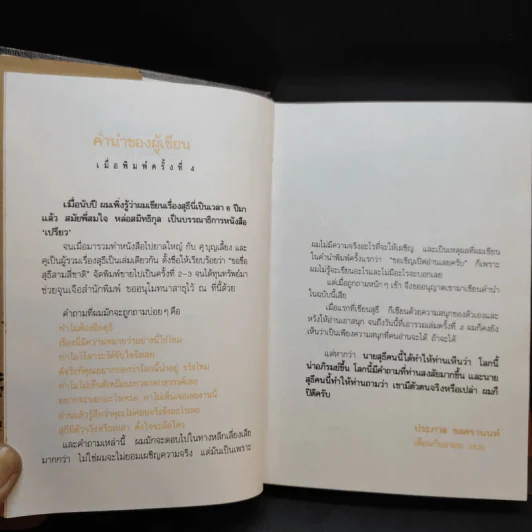 คำนำของผู้เขียน
เมื่อพิมพ์ครั้งที่ 4
เมื่อนับปี ผมเพิ่งรู้ว่าผมเขียนเรื่องสุธีนี่เป็นเวลา 6 ปีมา
แล้ว สมัยพี่สมใจ หล่อสมิทธิกุล เป็นบรรณาธิการหนังสือ
'เปรียว'
จนเมื่อมารวมทำหนังสือไปยาลใหญ่ กับ คุ บุญเลี้ยง และ
คุเป็นผู้รวมเรื่องสุธีเป็นเล่มเดียวกัน ตั้งชื่อให้เรียบร้อยว่า "ขอชื่อ
สุธีสามสี่ชาติ" จัดพิมพ์ขายไปเป็นครั้งที่ 2-3 จนได้ทุนทรัพย์มา
ช่วยจุนเจือสำนักพิมพ์ ขออนุโมทนาสาธุไว้ ณ ที่นี้ด้วย
คำถามที่ผมมักจะถูกถามบ่อยๆ คือ
ทำไมต้องชื่อสุธี
เรื่องนี้มีความหมายว่าอย่างนี้ใช่ไหม
และคำถามเหล่านี้ ผมมักจะตอบไปในทางหลีกเลี่ยงเสีย
มากกว่า ไม่ใช่ผมจะไม่ยอมเผชิญความจริง แต่มันเป็นเพราะ
ผมไม่มีความจริงอะไรที่จะให้เผชิญ และเป็นเหตุผลที่ผมเขียน
ในคำนำพิมพ์ครั้งแรกว่า "ขอเชิญเปิดอ่านเลยครับ" ก็เพราะ
ผมไม่รู้จะเขียนอะไรและไม่มีอะไรจะบอกเลย
แต่เมื่อถูกถามหนักๆ เข้า จึงขออนุญาตเขามาเขียนคำนำ
ในฉบับนี้เสีย
เมื่อแรกที่เขียนสุธี ก็เขียนด้วยความสนุกของตัวเองและ
หวังให้อ่านเอาสนุก จนถึงวันนี้ที่เอารวมเล่มครั้งที่ 4 ผมก็คงยัง
เห็นว่าเป็นเพียงความสนุกที่คนอ่านจะได้ ถ้าจะได้
แต่หากว่า นายสุธีคนนี้ได้ทำให้ท่านเห็นว่า โลกนี้
น่าอภิรมย์ขึ้น โลกนี้มีคำถามที่น่าสงสัยมากขึ้น และนาย
สุธีคนนี้ทำให้ท่านถามว่า เขามีตัวตนจริงหรือเปล่า ผมก็
ปิติครับ
ประภาส ชลศรานนท์